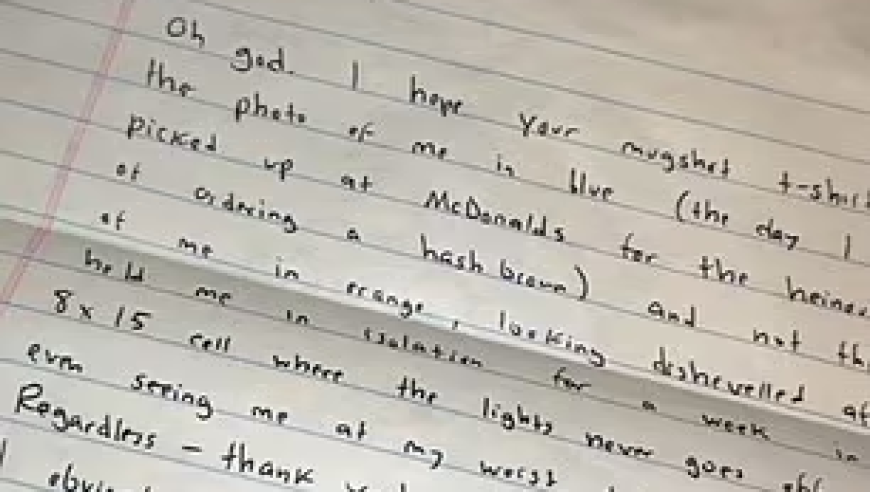 Oh god. I hope your mugshot t-shirt
the photo of me in blue (the day I
picked up at McDonalds for the heinou
of ordering a hash brown) and not th
of me in orange, looking dishevelled af
held me in isolation for a week in
8x15 cell where the lights never goes off
even seeing me at my worst
Regardless - thank
I obvio